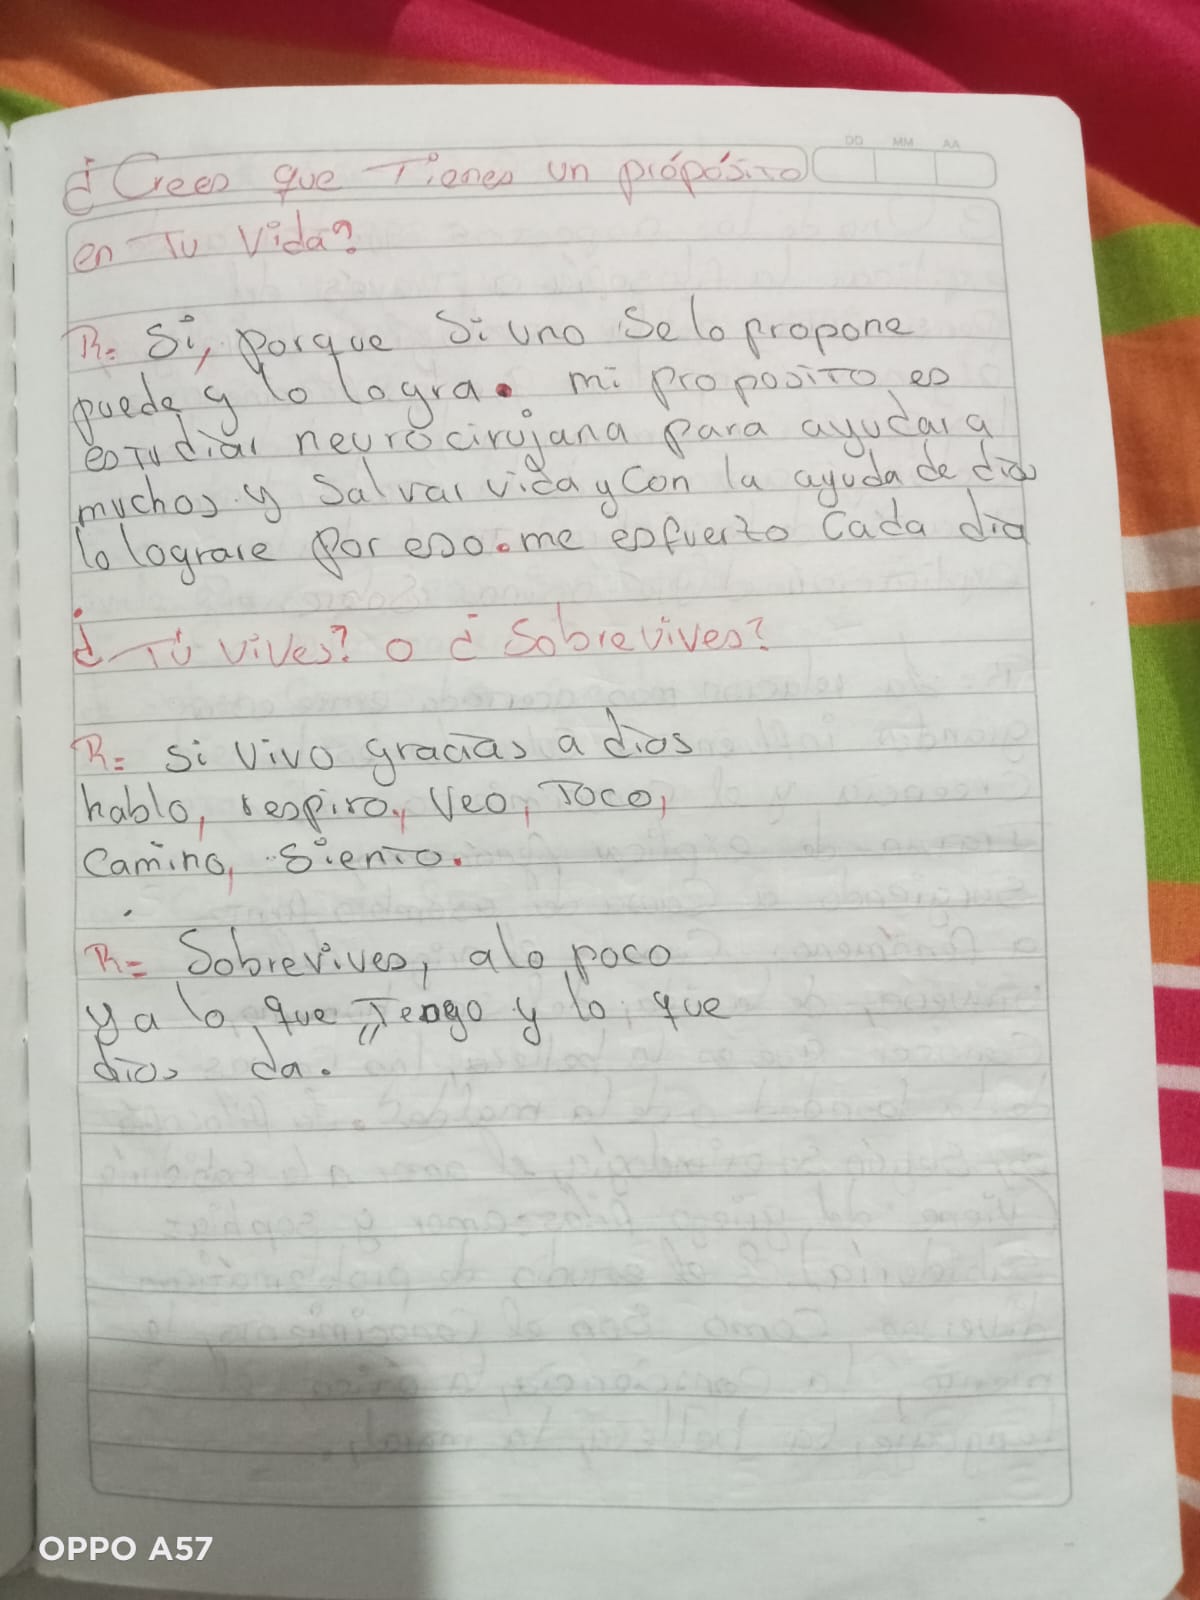 DD MM AA
¿Crees que Tienes un própósito
en Tu Vida?
R= Si, porque Si uno Se lo propone
puede y lo logra. mi proposito es
estudiar neurocirujana para ayudar a
muchos y Salvar vida y Con la ayuda de dios
lo lograre Por eso. me esfuerzo Cada dia
¿Tú vives? o ¿Sobrevives?
R= Si Vivo gracias a dios
hablo, respiro, Veo, Toco,
Camino, Siento.
R= Sobrevives, a lo poco
y a lo que Tengo y lo que
dios da.
OPPO A57